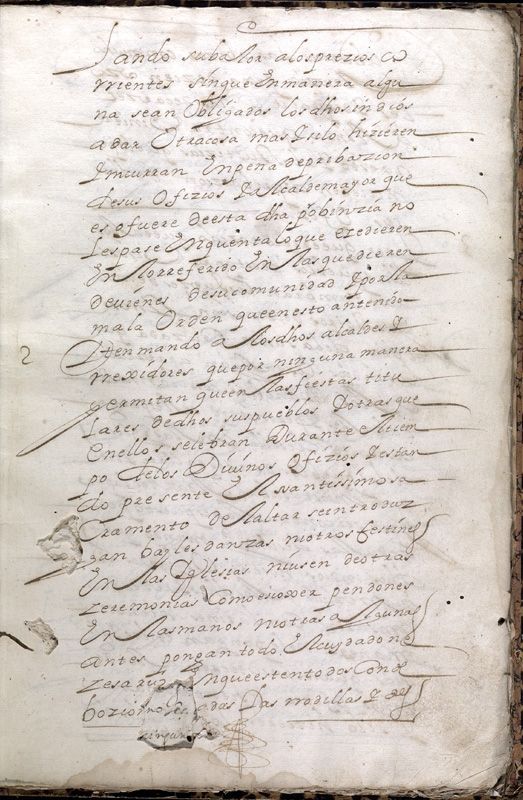 Jando subalor alos prezios co
rrientes sinque Enmanera algu
na sean Obligados losdhos indios
adar Otracosa mas Isilo hizieren
Imcurran Enpena depribazion
desus Ofizios I el Alcaldemayor que
es ofuere deesta dha probinzia no
lespase Enquenta loque ezedieren
En lo rreferido En las quedieren
devienes desucomunidad I por la
mala Orden queenesto antenido
2
Iten mando a losdhos alcaldes I
rrexidores quepor ninguna manera
permitan queen las fiestas titu
lares dedhos suspueblos I otras que
Enellos selebran Durante el tiem
po delos Divinos Ofizios I estan
do presente El santissimo sa
cramento del altar seintroduz
gan bayles danzas niotros festines
En las Iglesias niusen deotras
zeremonias Como escoxer pendones
En las manos niotras algunas
antes pongan todo El cuydado ne
zesario Enqueestentodos Conde
bozion das las rrodillas I